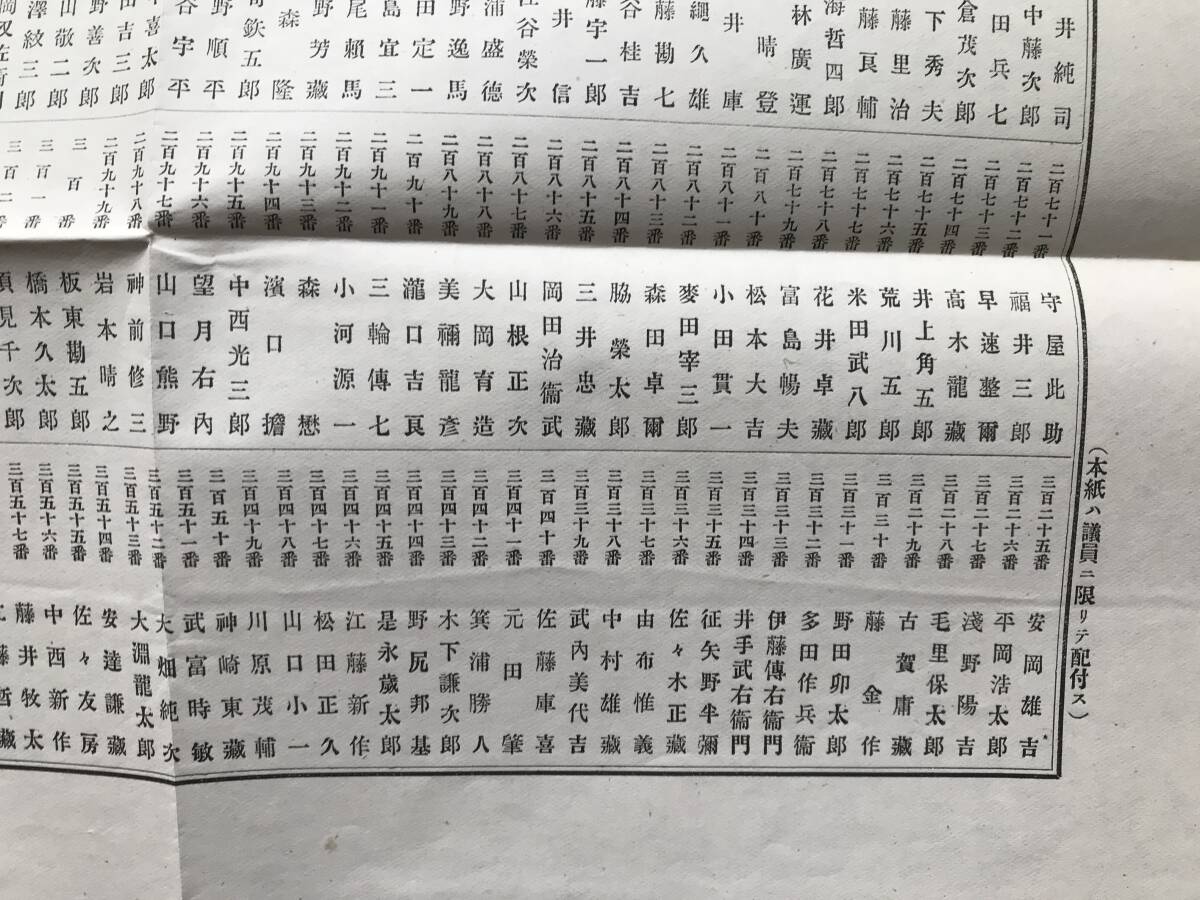 井純司
中藤次郎
田兵七
倉茂次郎
下秀夫
藤里治
藤良輔
海哲四郎
林廣運
晴登
井庫
繩久雄
藤勘七
谷桂吉
藤宇一郎
井信
谷榮次
浦盛德
野逸馬
田定一
島宜三
尾賴馬
野芳藏
森隆
鈇五郎
野順平
谷宇平
喜太郎
田吉三郎
野善次郎
山敬二郎
澤紋三郎
二百七十一番 守屋此助
二百七十二番 福井三郎
二百七十三番 早速整爾
二百七十四番 高木龍藏
二百七十五番 井上角五郎
二百七十六番 荒川五郎
二百七十七番 米田武八郎
二百七十八番 花井卓藏
二百七十九番 富島暢夫
二百八十番 松本大吉
二百八十一番 小田貫一
二百八十二番 麥田宰三郎
二百八十三番 森田卓爾
二百八十四番 脇榮太郎
二百八十五番 三井忠藏
二百八十六番 岡田治衞武
二百八十七番 山根正次
二百八十八番 大岡育造
二百八十九番 美禰龍彥
二百九十番 瀧口吉良
二百九十一番 三輪傳七
二百九十二番 小河源一
二百九十三番 森懋
二百九十四番 濱口擔
二百九十五番 中西光三郎
二百九十六番 望月右內
二百九十七番 山口熊野
二百九十八番 神前修三
二百九十九番 岩本晴之
三百番 板東勘五郎
三百一番 橋本久太郎
三百二番 須見千次郎
三百二十五番 安岡雄吉
三百二十六番 平岡浩太郎
三百二十七番 淺野陽吉
三百二十八番 毛里保太郎
三百二十九番 古賀庸藏
三百三十番 藤金作
三百三十一番 野田卯太郎
三百三十二番 多田作兵衞
三百三十三番 伊藤傳右衞門
三百三十四番 井手武右衞門
三百三十五番 征矢野半彌
三百三十六番 佐々木正藏
三百三十七番 由布惟義
三百三十八番 中村雄藏
三百三十九番 武內美代吉
三百四十番 佐藤庫喜
三百四十一番 元田肇
三百四十二番 箕浦勝人
三百四十三番 木下謙次郎
三百四十四番 野尻邦基
三百四十五番 是永歲太郎
三百四十六番 江藤新作
三百四十七番 松田正久
三百四十八番 山口小一
三百四十九番 川原茂輔
三百五十番 神崎東藏
三百五十一番 武富時敏
三百五十二番 大畑純次
三百五十三番 大淵龍太郎
三百五十四番 安達謙藏
三百五十五番 佐々友房
三百五十六番 中西新作
三百五十七番 藤井牧太
藤哲藏
(本紙ハ議員ニ限リテ配付ス)